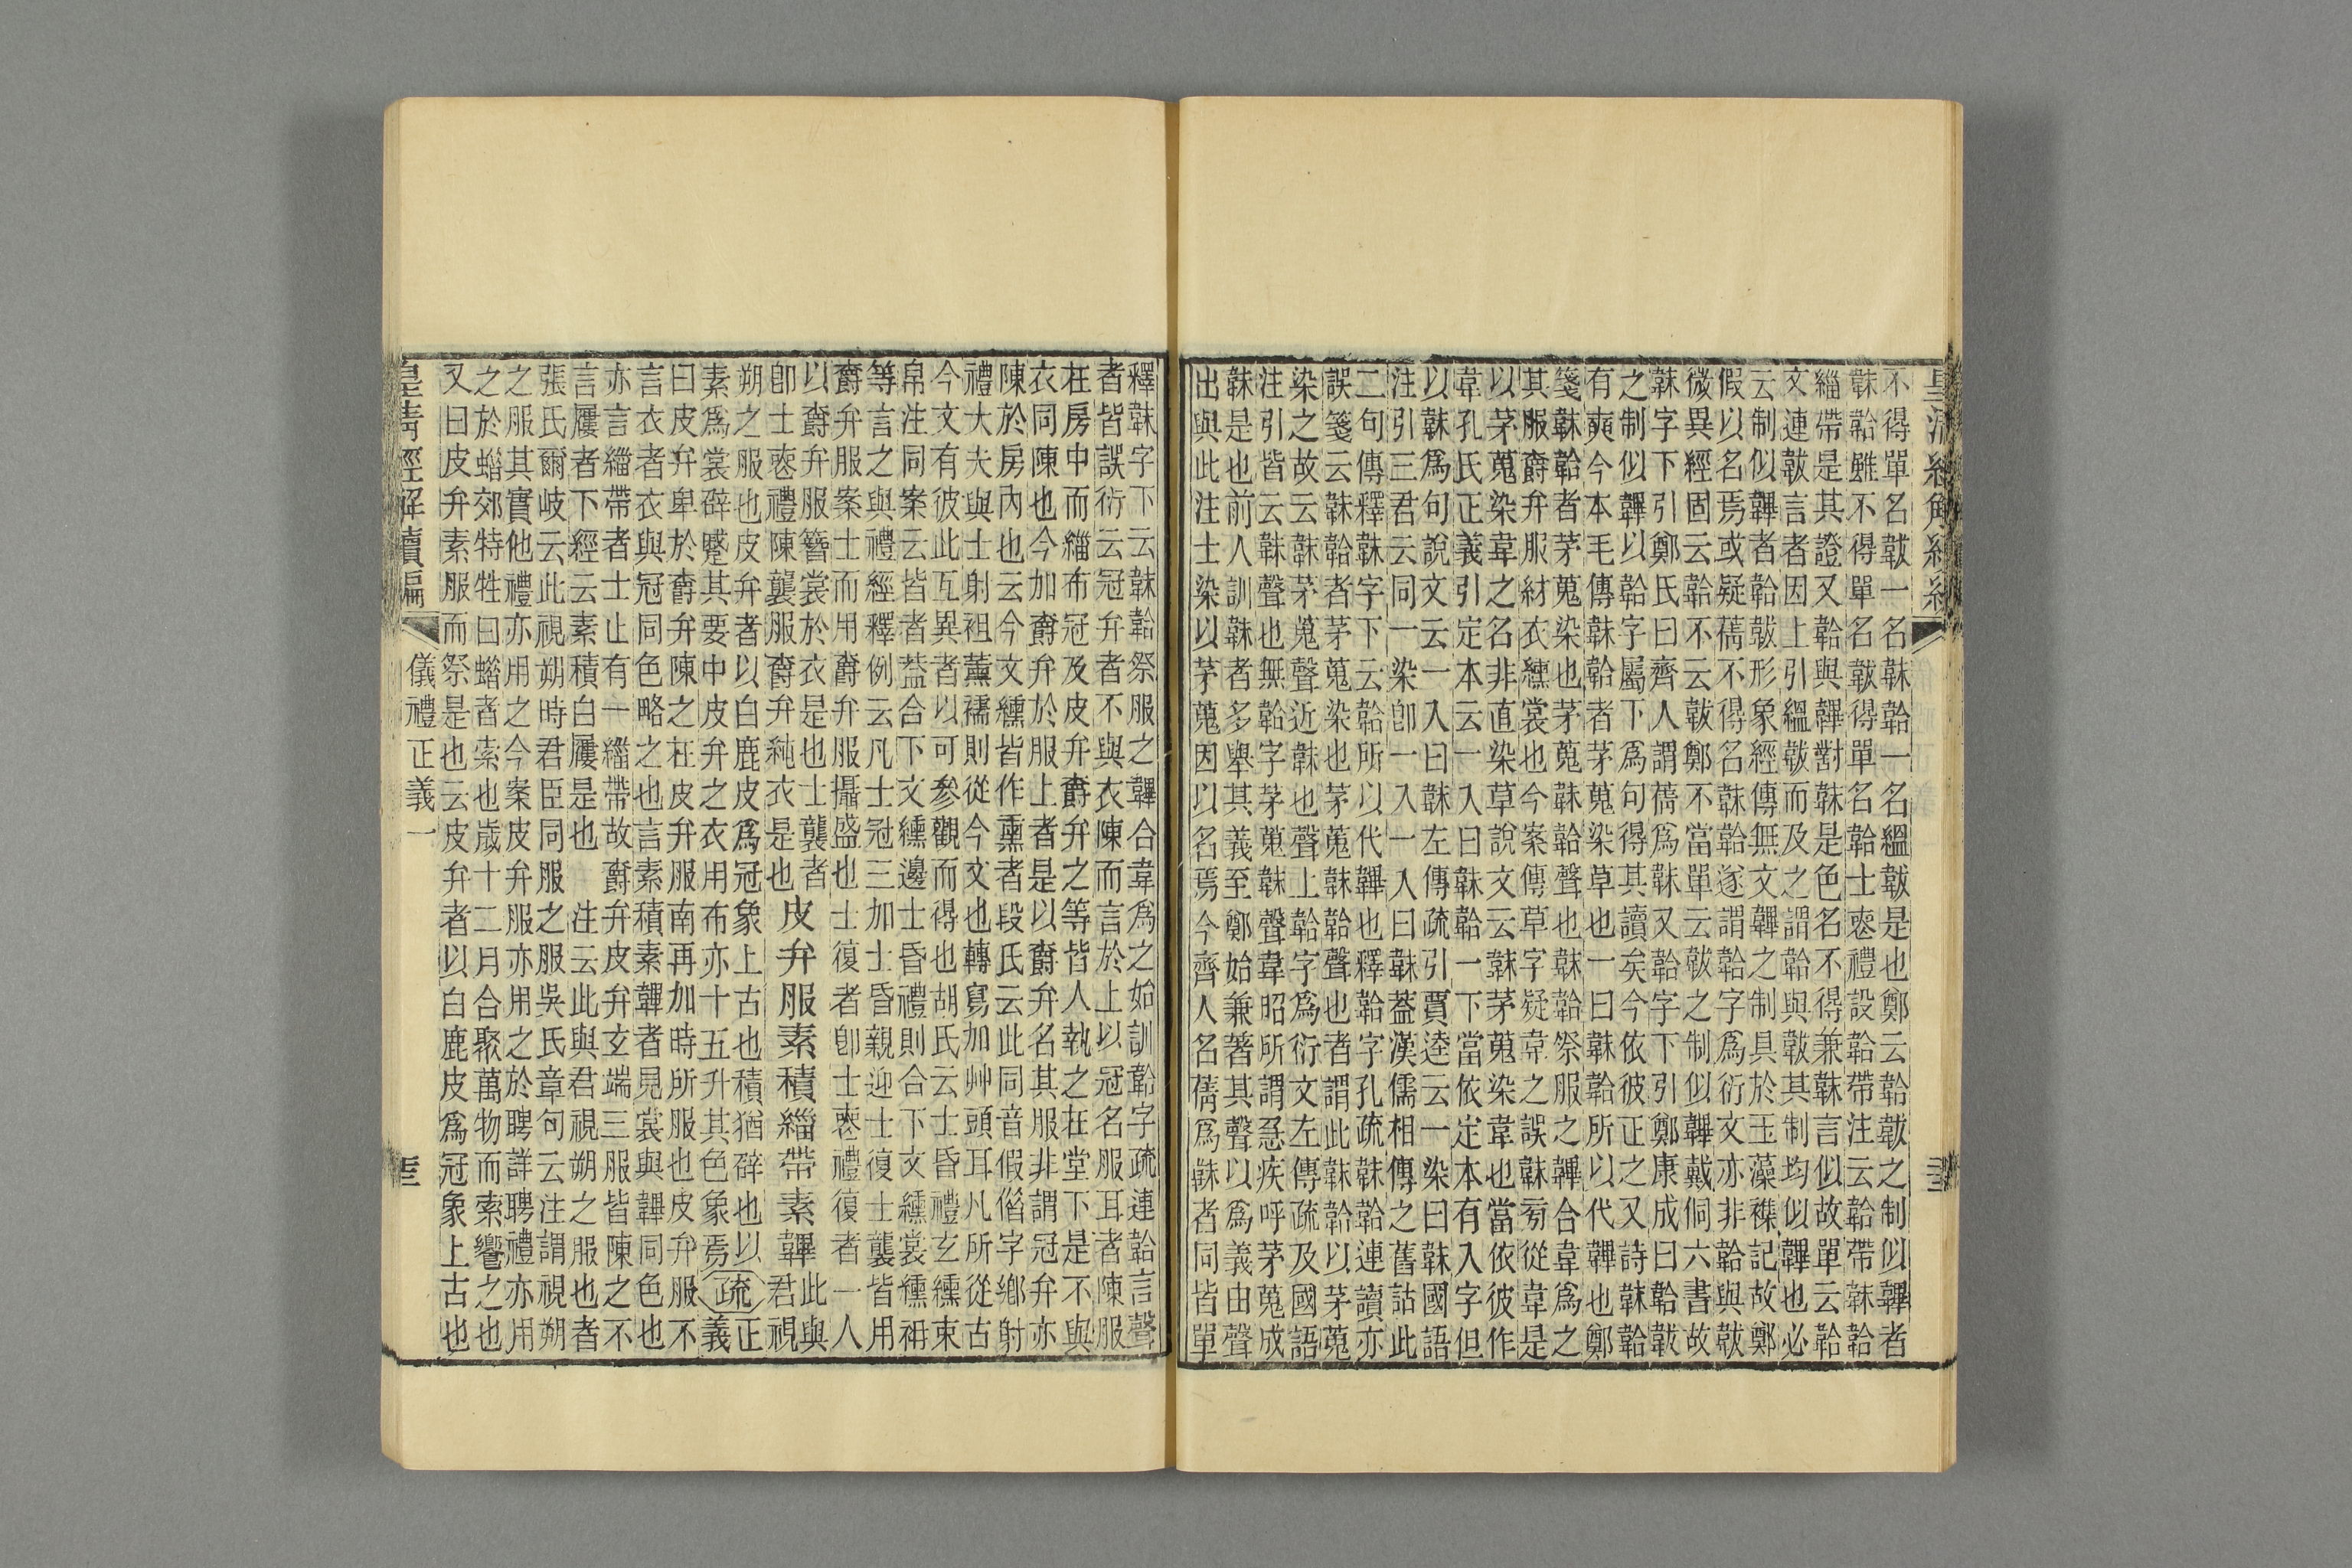 不得單名韍一名韎韐一名縕韍是也鄭云韐韍之制似韠者
韎韐雖不得單名韍得單名韐士喪禮設韐帶注云韐帶韎韐
緇帶是其證又韐與韠對韎是色名不得兼韎言似故單云韐
文連韍言者因上引縕韍而及之謂韐與韍其制均似韠也必
云制似韠者韐韍形象經傳無文韠之制具於玉藻襍記故鄭
假以名焉或疑蒨不得名韎韐遂謂韐字爲衍文亦非韐與韍
微異經固云韐不云韍鄭不當單云韍之制似韠戴侗六書故
韎字下引鄭氏曰齊人謂蒨爲韎又韐字下引鄭康成曰韐韍
之制似韠以韐字屬下爲句得其讀矣今依彼正之又詩韎韐
有奭今本毛傳韎韐者茅蒐染草也一曰韎韐所以代韠也鄭
箋韎韐者茅蒐染也茅蒐韎韐聲也韎韐祭服之韠合韋爲之
其服爵弁服紂衣纁裳也今案傳草字疑韋之誤韎旁從韋是
以茅蒐染韋之名非直染草說文云韎茅蒐染韋也當依彼作
韋孔氏正義引定本云一入曰韎韐一下當依定本有入字但
以韎爲句說文云一入曰韎左傳疏引賈逵云一染曰韎國語
注引三君云同一染卽一入一入曰韎蓋漢儒相傳之舊詁此
二句傳釋韎字下云韐所以代韠也釋韐字孔疏韎韐連讀亦
誤箋云韎韐者茅蒐染也茅蒐韎韐聲也者謂此韎韐以茅蒐
染之故云韎茅蒐聲近韎也聲上韐字爲衍文左傳疏及國語
注引皆云韎聲也無韐字茅蒐韎聲韋昭所謂急疾呼茅蒐成
韎是也前人訓韎者多舉其義至鄭始兼著其聲以爲義由聲
出與此注士染以茅蒐因以名焉今齊人名蒨爲韎者同皆單
釋韎字下云韎韐祭服之韠合韋爲之始訓韐字疏連韐言聲
者皆誤衍云冠弁者不與衣陳而言於上以冠名服耳者陳服
在房中而緇布冠及皮弁爵弁之等皆人執之在堂下是不與
衣同陳也今加爵弁於服上者是以爵弁名其服非謂冠弁亦
陳於房內也云今文纁皆作熏者段氏云此同音假借字鄉射
禮大夫與士射袒薰襦則從今文也轉寫加艸頭耳凡所從古
今文有彼此互異者以可參觀而得也胡氏云士昏禮玄纁束
帛注同案云皆者蓋合下文纁邊士昏禮則合下文纁裳纁袡
等言之與禮經釋例云凡士冠三加士昏親迎士復士襲皆用
爵弁服案士而用爵弁服攝盛也士復者卽士喪禮復者一人
以爵弁服簪裳於衣是也士襲者
卽士喪禮陳襲服爵弁純衣是也
皮弁服素積緇帶素韠
此與
君視
朔之服也皮弁者以白鹿皮爲冠象上古也積猶辟也以
素爲裳辟蹙其要中皮弁之衣用布亦十五升其色象焉
疏
正
義
曰皮弁卑於爵弁陳之在皮弁服南再加時所服也皮弁服不
言衣者衣與冠同色略之也言素積素韠者見裳與韠同色也
亦言緇帶者士止有一緇帶故爵弁皮弁玄端三服皆陳之不
言屨者下經云素積白屨是也　注云此與君視朔之服也者
張氏爾岐云此視朔時君臣同服之服吳氏章句云注謂視朔
之服其實他禮亦用之今案皮弁服亦用之於聘詳聘禮亦用
之於蜡郊特牲曰蜡者索也歲十二月合聚萬物而索饗之也
又曰皮弁素服而祭是也云皮弁者以白鹿皮爲冠象上古也
皇清經解續編
儀禮正義一